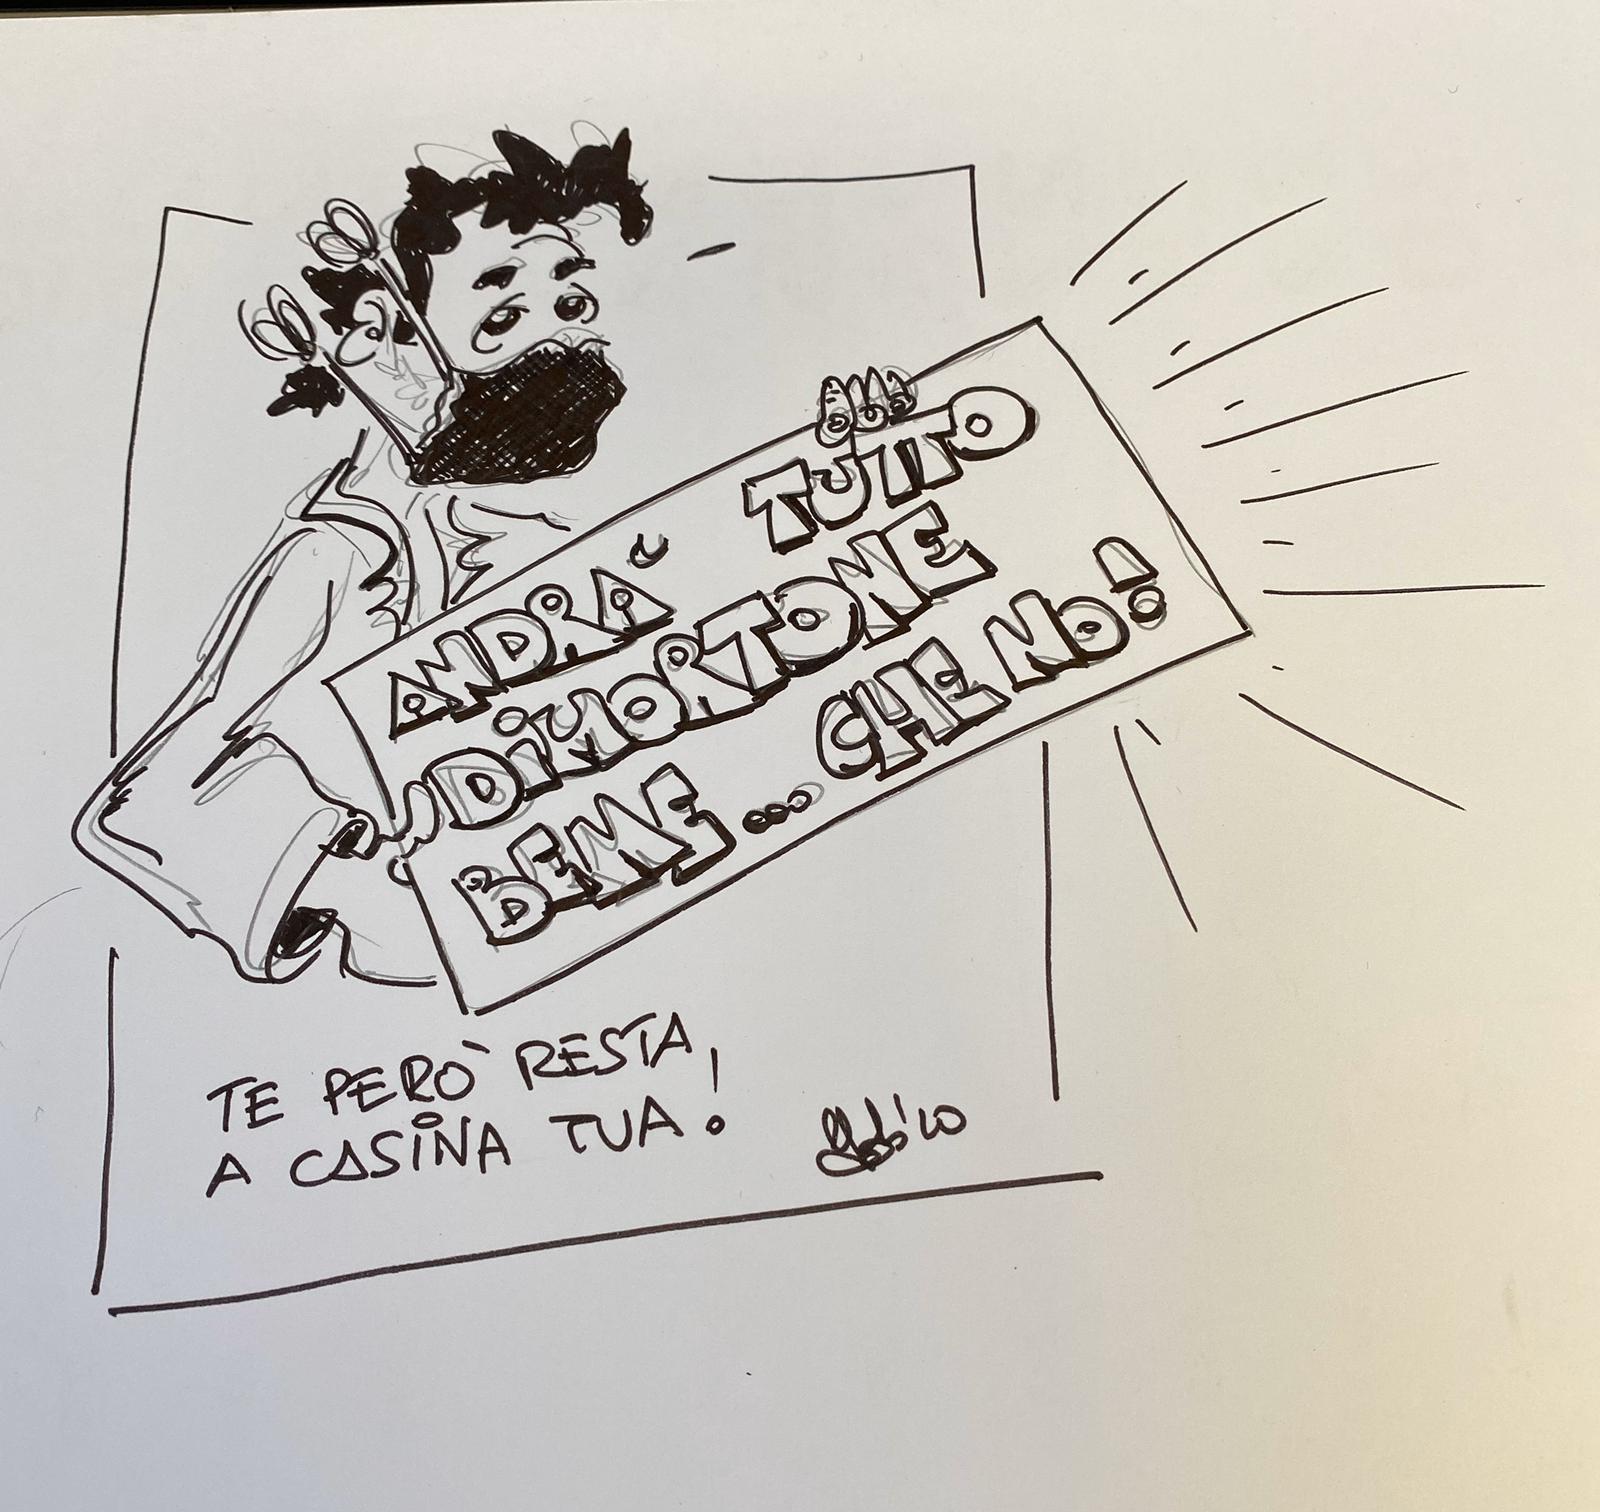 ANDRÀ TUTTO
DIMORTONE
BENE... CHE NO!
TE PERÒ RESTA,
A CASINA TUA!